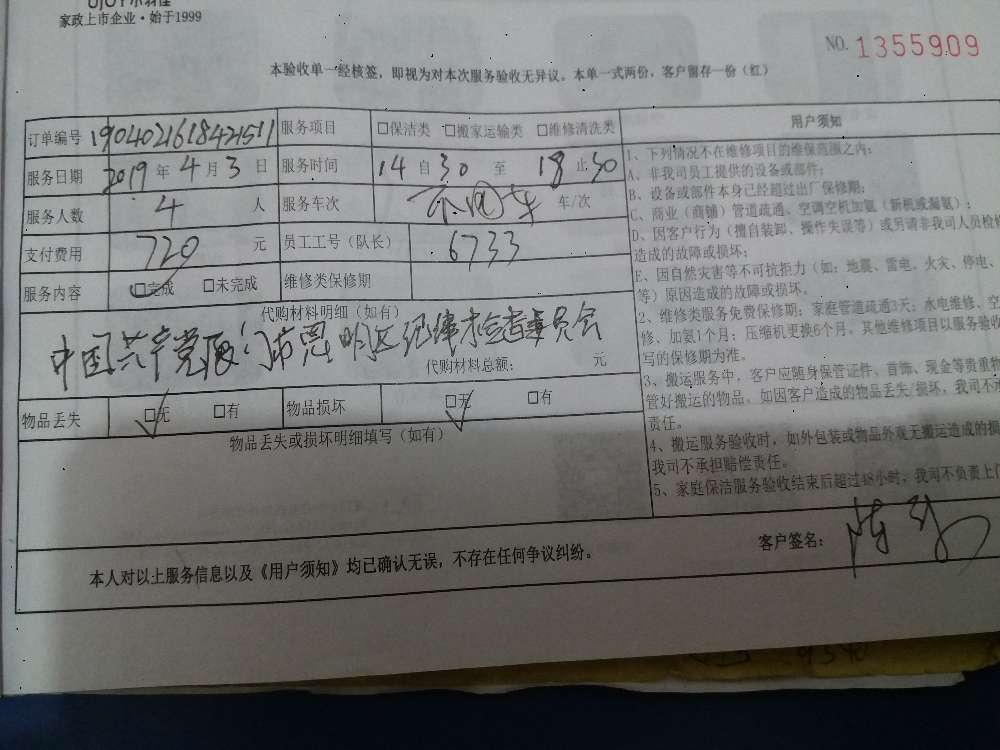 家政上市企业·始于1999
NO. 1355909
本验收单一经核签，即视为对本次服务验收无异议。本单一式两份，客户留存一份（红）
订单编号 1904021618421511 服务项目 □保洁类 □搬家运输类 □维修清洗类
服务日期 2019 年 4 月 3 日 服务时间 14 自 30 至 18 止 30
服务人数 4 人 服务车次 车/次
支付费用 720 元 员工工号（队长） 6733
服务内容 □完成 □未完成 维修类保修期
代购材料明细（如有）
中国共产党厦门市思明区纪律检查委员会
代购材料总额： 元
物品丢失 □无 □有 物品损坏 □无 □有
物品丢失或损坏明细填写（如有）
用户须知
1、下列情况不在维修项目的维保范围之内：
A、非我司员工提供的设备或部件；
B、设备或部件本身已经超过出厂保修期；
C、商业（商铺）管道疏通、空调空机加氨（新机或漏氨）；
D、因客户行为（擅自装卸、操作失误等）或另请非我司人员检修
造成的故障或损坏；
E、因自然灾害等不可抗拒力（如：地震、雷电、火灾、停电、
等）原因造成的故障或损坏。
2、维修类服务免费保修期：家庭管道疏通3天；水电维修、空
修、加氨1个月；压缩机更换6个月。其他维修项目以服务验收
写的保修期为准。
3、搬运服务中，客户应随身保管证件、首饰、现金等贵重物
管好搬运的物品。如因客户造成的物品丢失/损坏，我司不
责任。
4、搬运服务验收时，如外包装或物品外观无搬运造成的损
我司不承担赔偿责任。
5、家庭保洁服务验收结束后超过48小时，我司不负责上门
本人对以上服务信息以及《用户须知》均已确认无误，不存在任何争议纠纷。
客户签名：